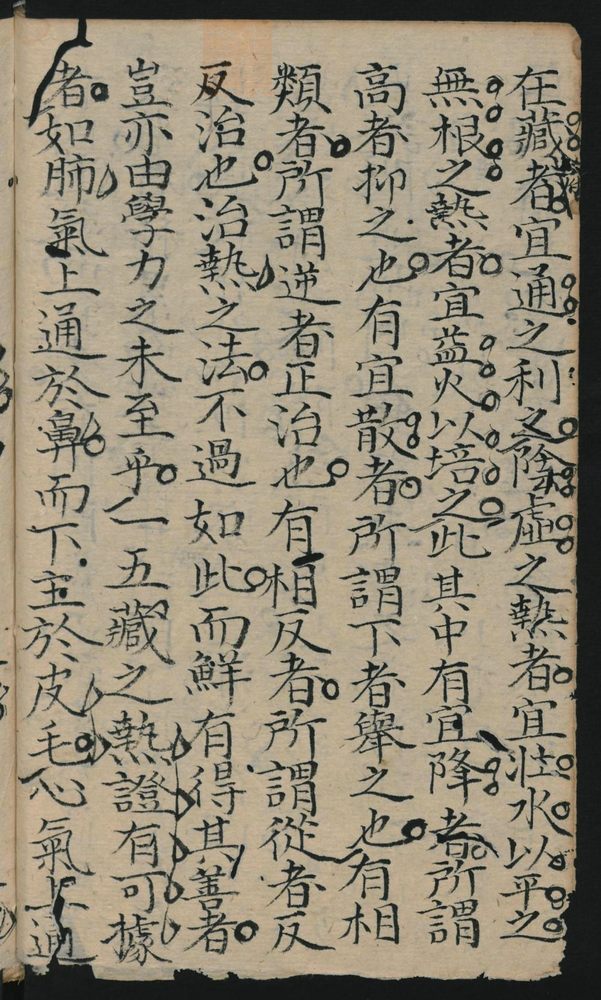 在藏者宜通之利之陰虛之熱者宜壯水以平之
無根之熱者宜益火以培之此其中有宜降者所謂
高者抑之也有宜散者所謂下者舉之也有相
類者所謂逆者正治也有相反者所謂從者反
反治也治熱之法不過如此而鮮有得其善者
豈亦由學力之未至乎一五藏之熱證有可據
者如肺氣上通於鼻而下主於皮毛心氣上通